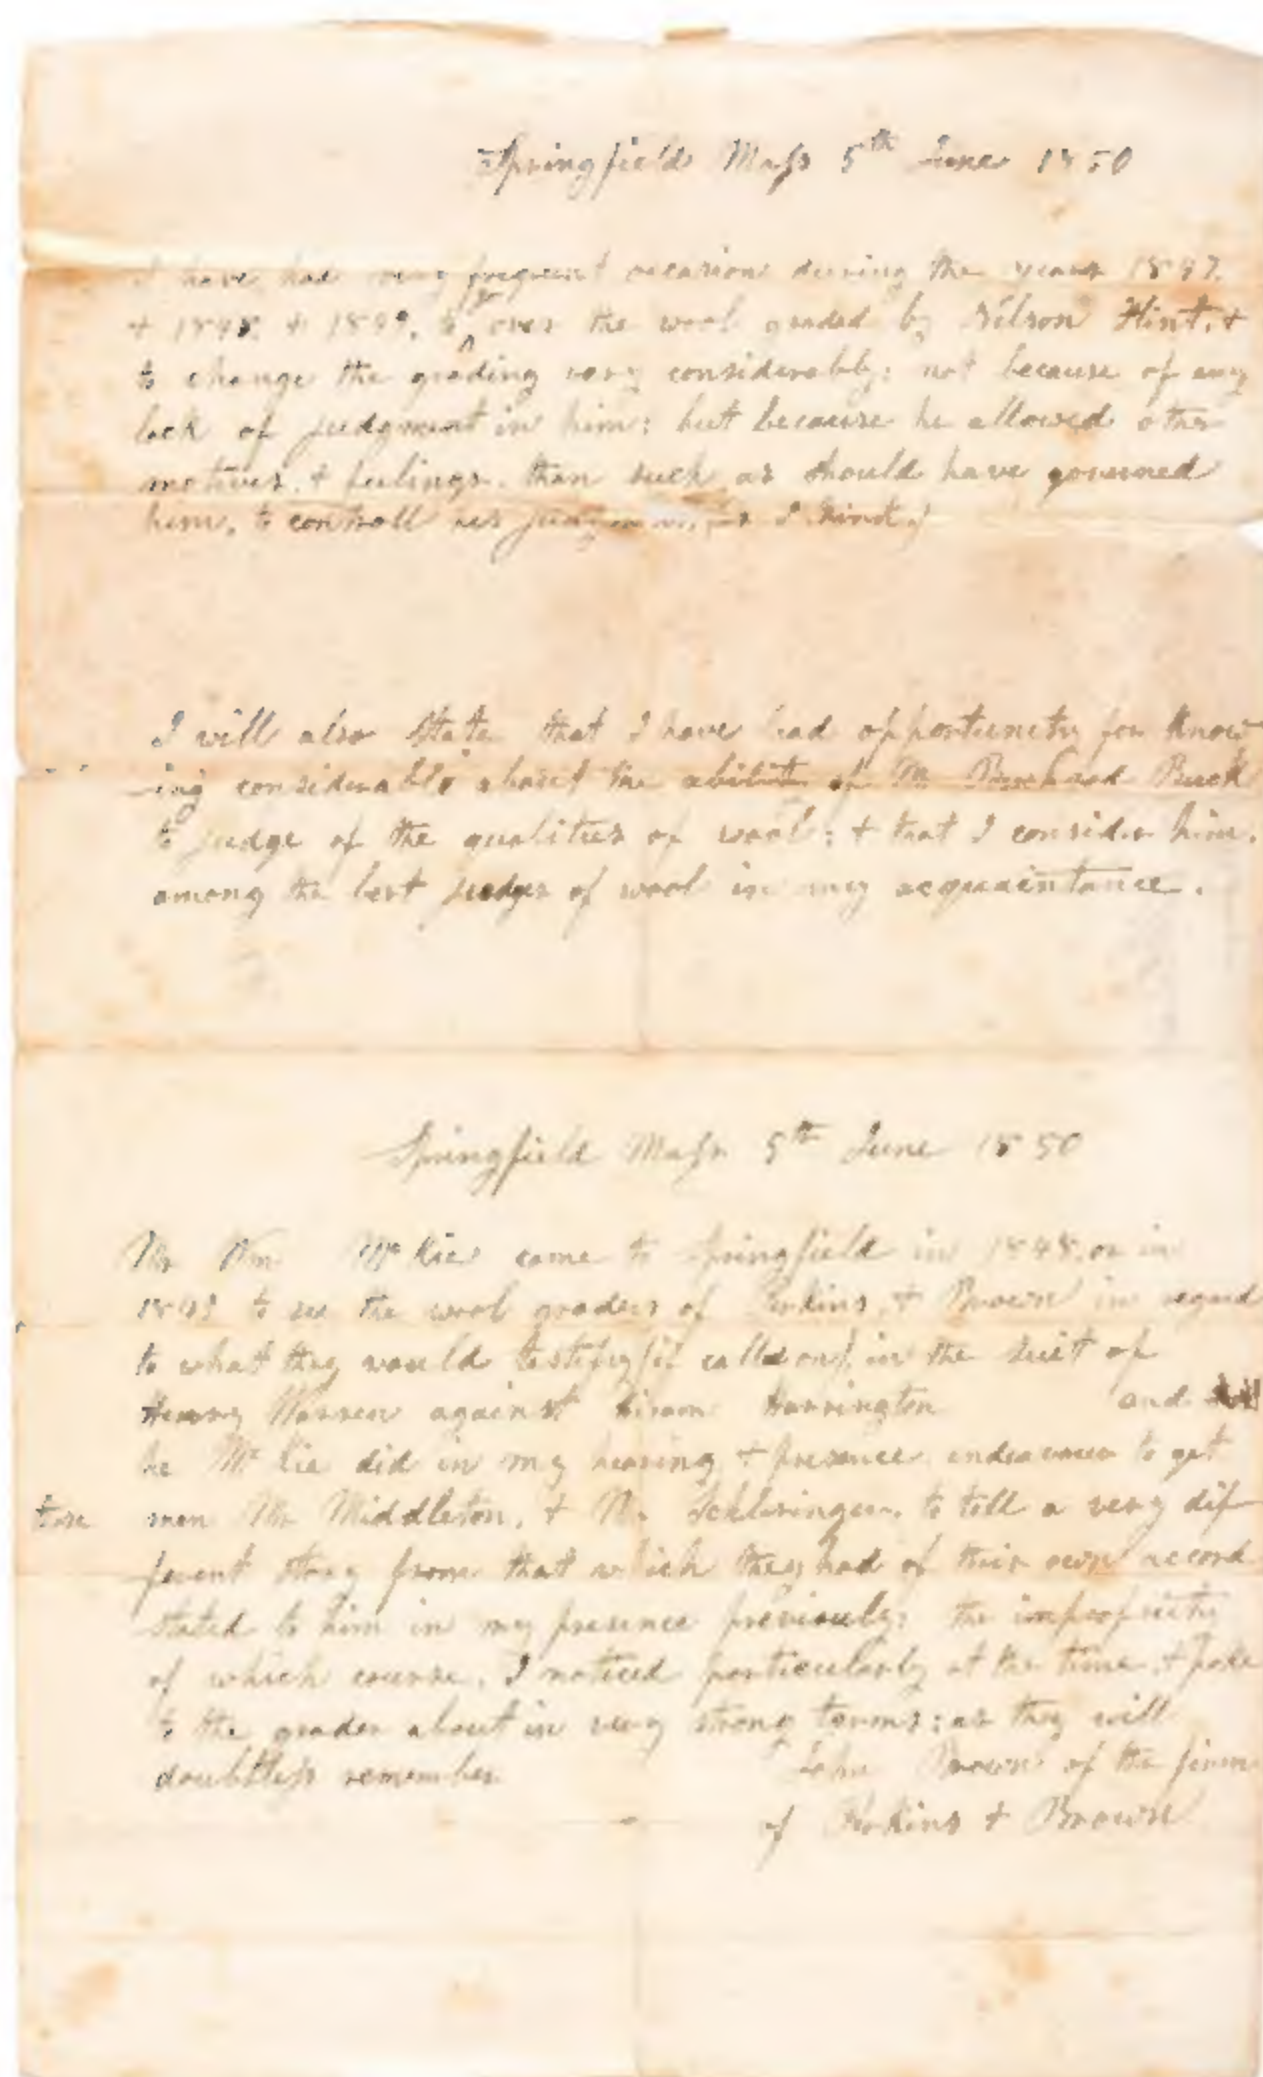 Springfield Mass 5th June 1850
I have had very frequent occasion during the years 1847.
+ 1848. + 1849. to over the wool graded by Nelson Flint. +
to change the grading very considerably: not because of any
lack of judgment in him: but because he allowed other
motives, + feelings, than such as should have governed
him, to controll his
I will also State that I have had opportunity for know
ing considerable about the ability of Mr Buck
to judge of the qualities of wool; + that I consider him,
among the best judges of wool in my acquaintance.
Springfield Mass 5th June 1850
Mr Wm McKie came to Springfield in 1848, or in
1849 to see the wool graders of Perkins, + Brown in regard
to what they would testify (if called on) in the suit of
Henry Warren against Hiram Harrington and
he McKie did in my hearing + presence endeavour to get
men Mr Middleton, + to tell a very dif
ferent story from that which they had of their own accord
stated to him in my presence previously; the impropriety
of which course, I noticed particularly at the time, +
to the grader about in very strong terms; as they will
doubtless remember
John Brown of the firm
of Perkins + Brown